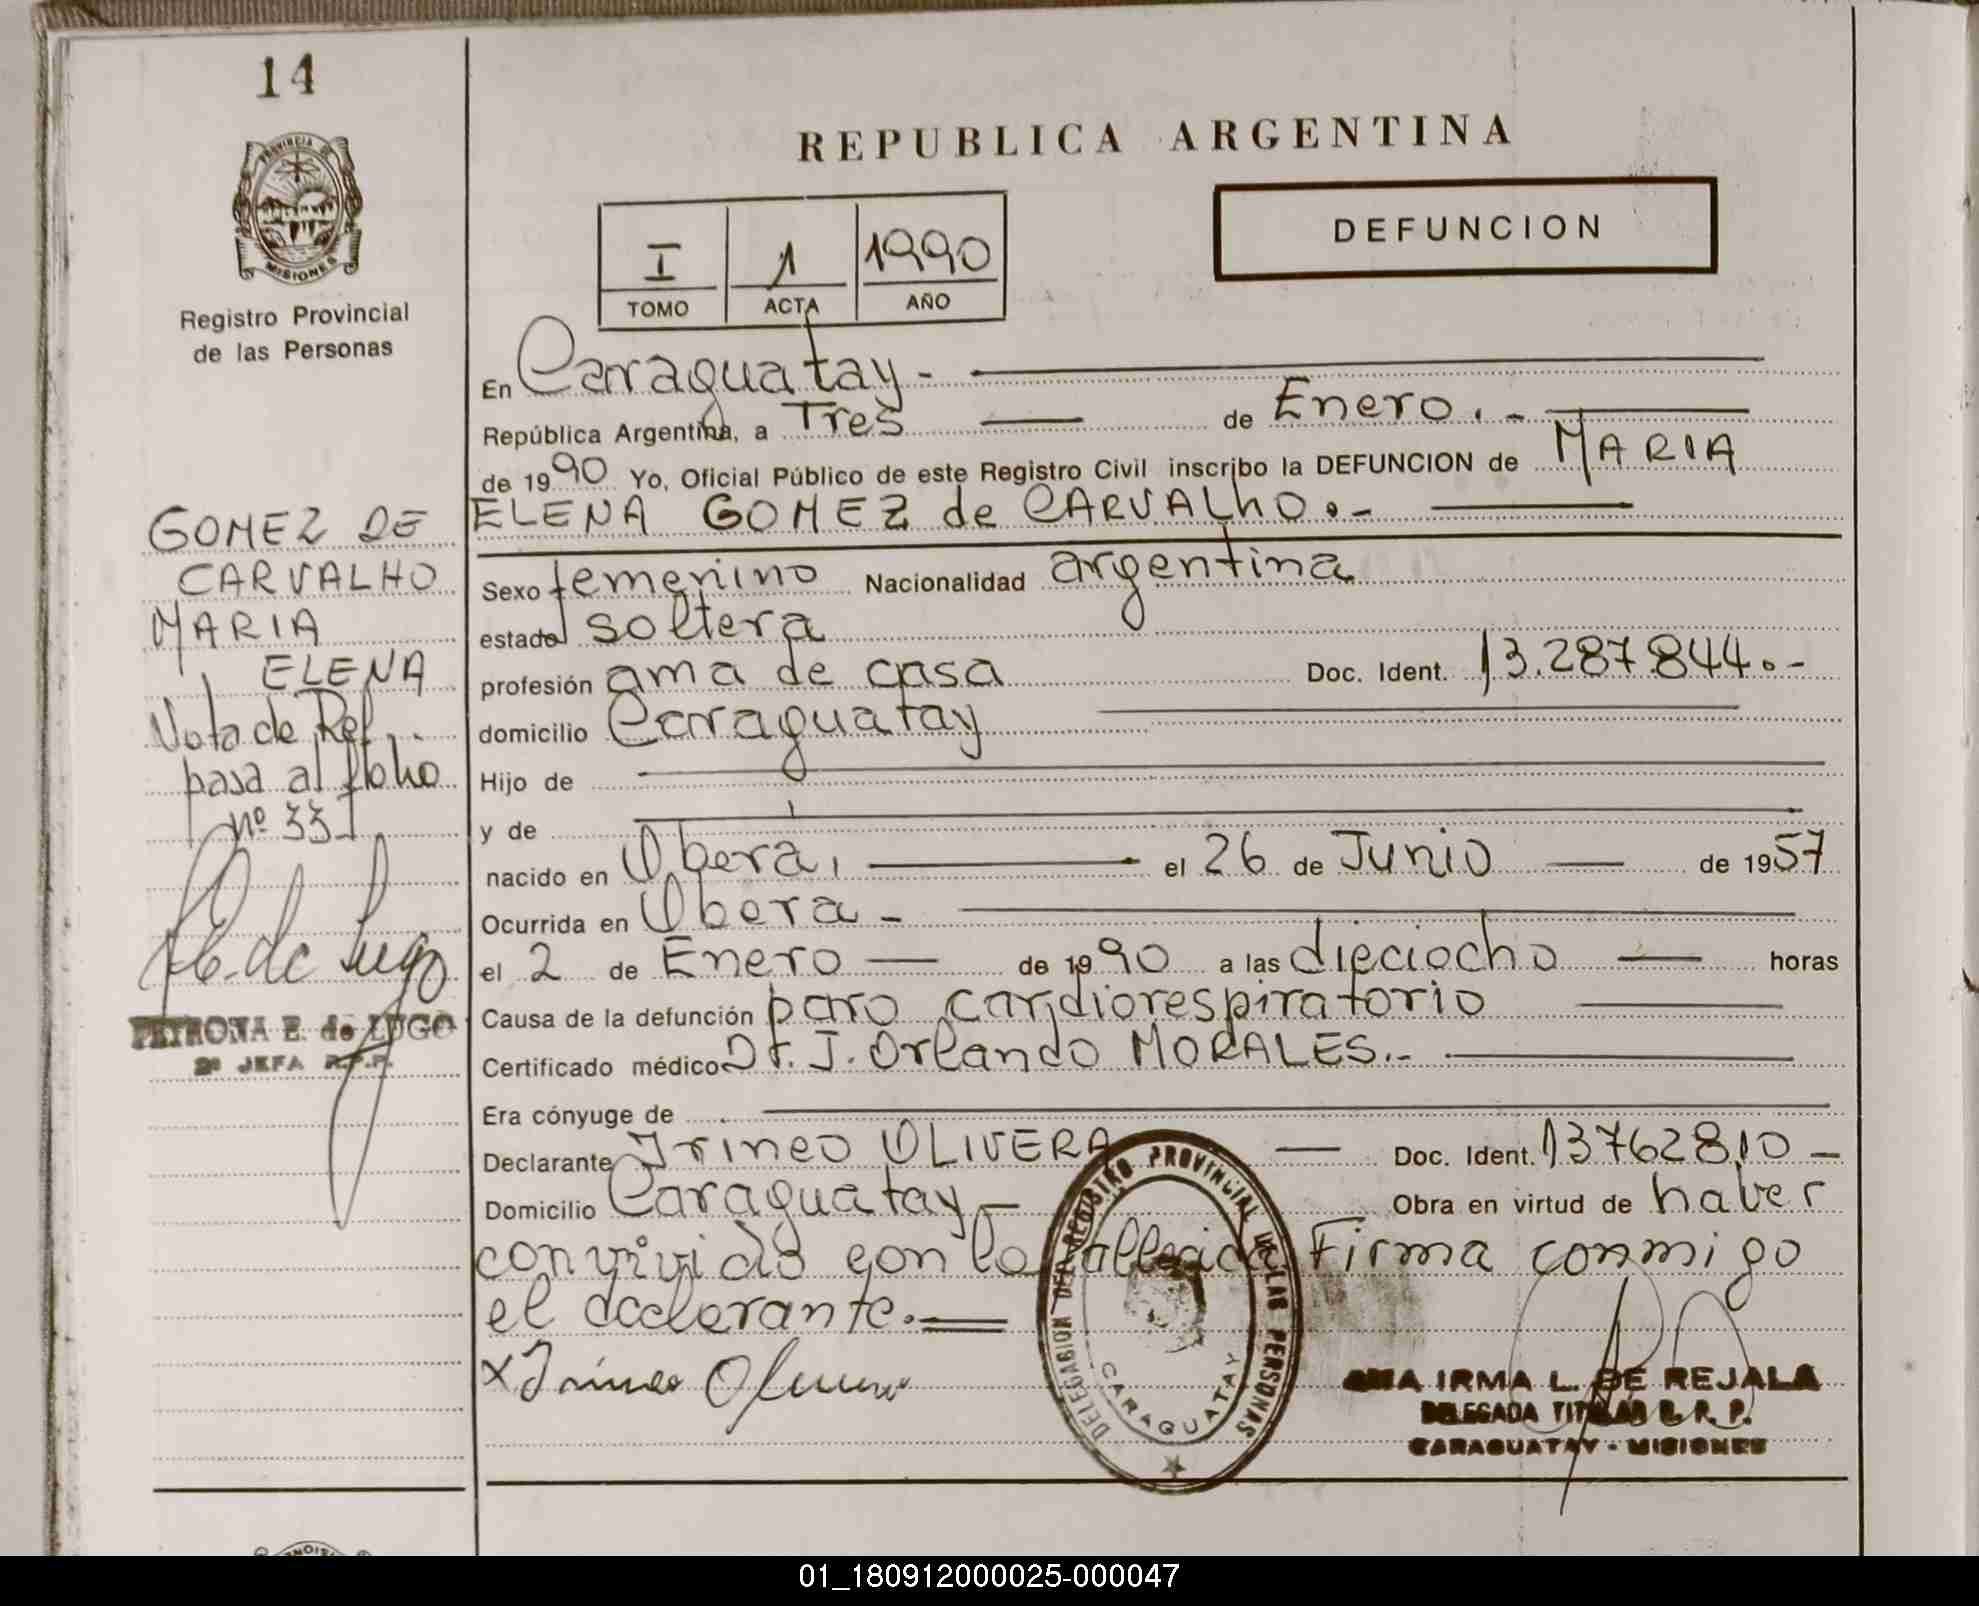 14
PROVINCIA DE
MISIONES
Registro Provincial
de las Personas
GOMEZ DE
CARVALHO
MARIA
ELENA
Nota de Ref.
pasa al folio
nº 33
P E. de Lugo
PETRONA E. de LUGO
2ª JEFA R.P.P.
REPUBLICA ARGENTINA
I 1 1990
TOMO ACTA AÑO
DEFUNCION
En Caraguatay.-
República Argentina, a Tres de Enero.-
de 1990 Yo, Oficial Público de este Registro Civil inscribo la DEFUNCION de MARIA
ELENA GOMEZ de CARVALHO.-
Sexo femenino Nacionalidad argentina
estado soltera
profesión ama de casa Doc. Ident. 13.287.844.-
domicilio Caraguatay
Hijo de
y de
nacido en Obera, el 26 de Junio de 1957
Ocurrida en Obera -
el 2 de Enero de 1990 a las dieciocho horas
Causa de la defunción paro cardiorespiratorio
Certificado médico Dr. J. Orlando MORALES.-
Era cónyuge de
Declarante Irineo OLIVERA Doc. Ident. 13762810 -
Domicilio Caraguatay - Obra en virtud de haber
convivido con la fallecida Firma conmigo
el declarante.=
x Irineo Olivera
DELEGACION DEL REGISTRO PROVINCIAL DE LAS PERSONAS
CARAGUATAY
ANA IRMA L. DE REJALA
DELEGADA TITULAR R. P. P.
CARAGUATAY - MISIONES
01_180912000025-000047